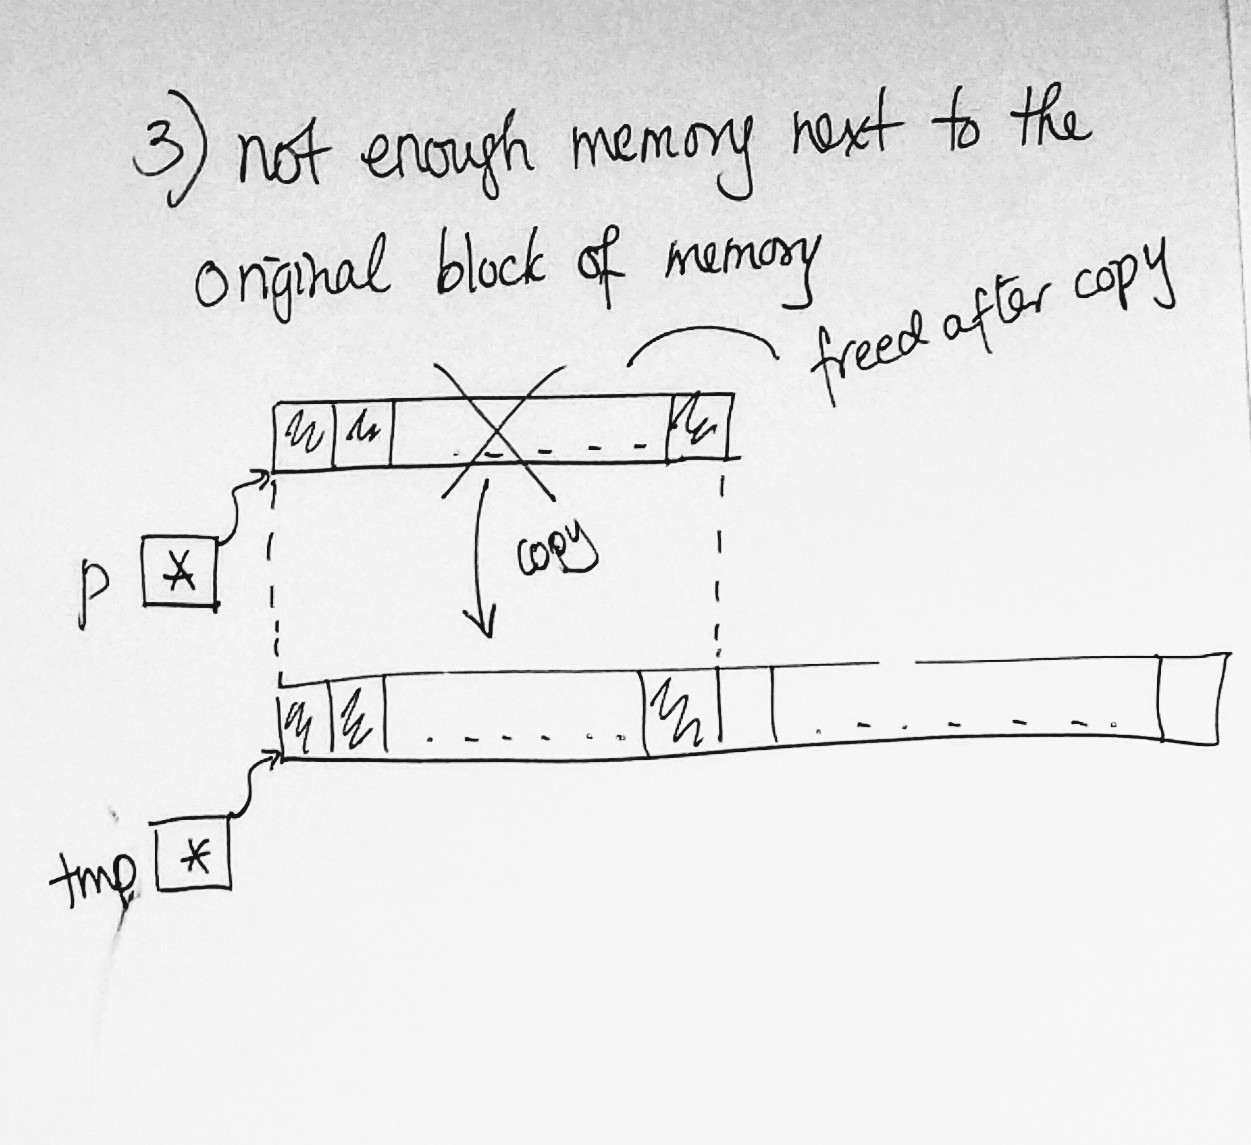 3) not enough memory next to the
original block of memory
freed after copy
copy
p *
tmp *